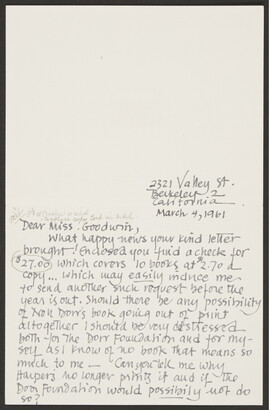 2321 Valley St.
Berkeley 2
California
March 4, 1961
Dear Miss Goodwin,
What happy news your kind letter
brought! Enclosed you find a check for
$27.00 which covers 10 books at 2.70 a
copy... which may easily induce me
to send another such request before the
year is out. Should there be any possibility
of Nell Dorr's book going out of print
altogether I should be very distressed
both for the Dorr Foundation and for my-
self as I know of no book that means so
much to me — Can you tell me why
Harpers no longer prints it and if the
Dorr Foundation would possibly not do
so?